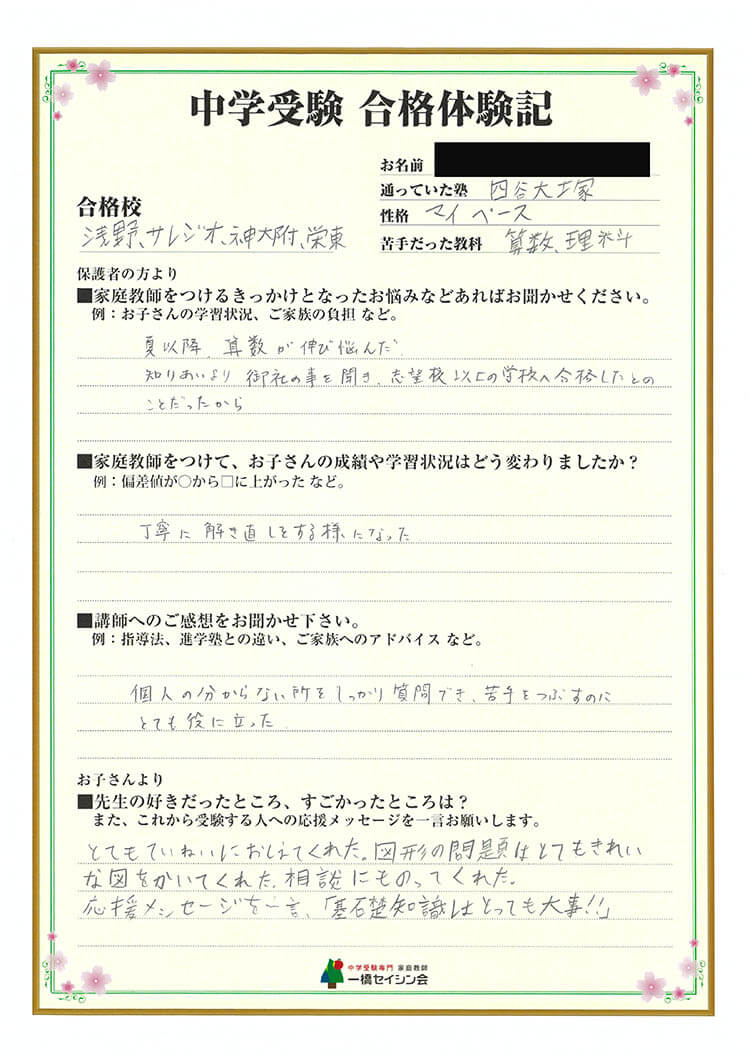 中学受験 合格体験記
お名前
通っていた塾 四谷大塚
合格校
性格 マイペース
浅野、サレジオ、神大附、栄東
苦手だった教科 算数、理科
保護者の方より
■家庭教師をつけるきっかけとなったお悩みなどあればお聞かせください。
例：お子さんの学習状況、ご家族の負担 など。
夏以降、算数が伸び悩んだ.
知りあいより 御社の事を聞き、志望校以上の学校へ合格したとの
ことだったから
■家庭教師をつけて、お子さんの成績や学習状況はどう変わりましたか？
例：偏差値が○から□に上がった など。
丁寧に解き直しをする様になった
■講師へのご感想をお聞かせ下さい。
例：指導法、進学塾との違い、ご家族へのアドバイス など。
個人の分からない所をしっかり質問でき、苦手をつぶすのに
とても役に立った.
お子さんより
■先生の好きだったところ、すごかったところは？
また、これから受験する人への応援メッセージを一言お願いします。
とてもていねいにおしえてくれた。図形の問題はとてもきれい
な図をかいてくれた.相談にものってくれた。
応援メッセージを一言、「基礎知識はとっても大事!!」
中学受験専門 家庭教師
一橋セイシン会